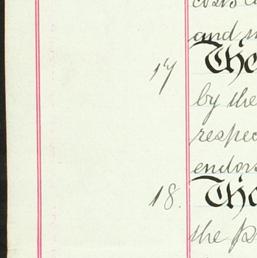 and
17 The
by the
respec
endors
18. The
the p